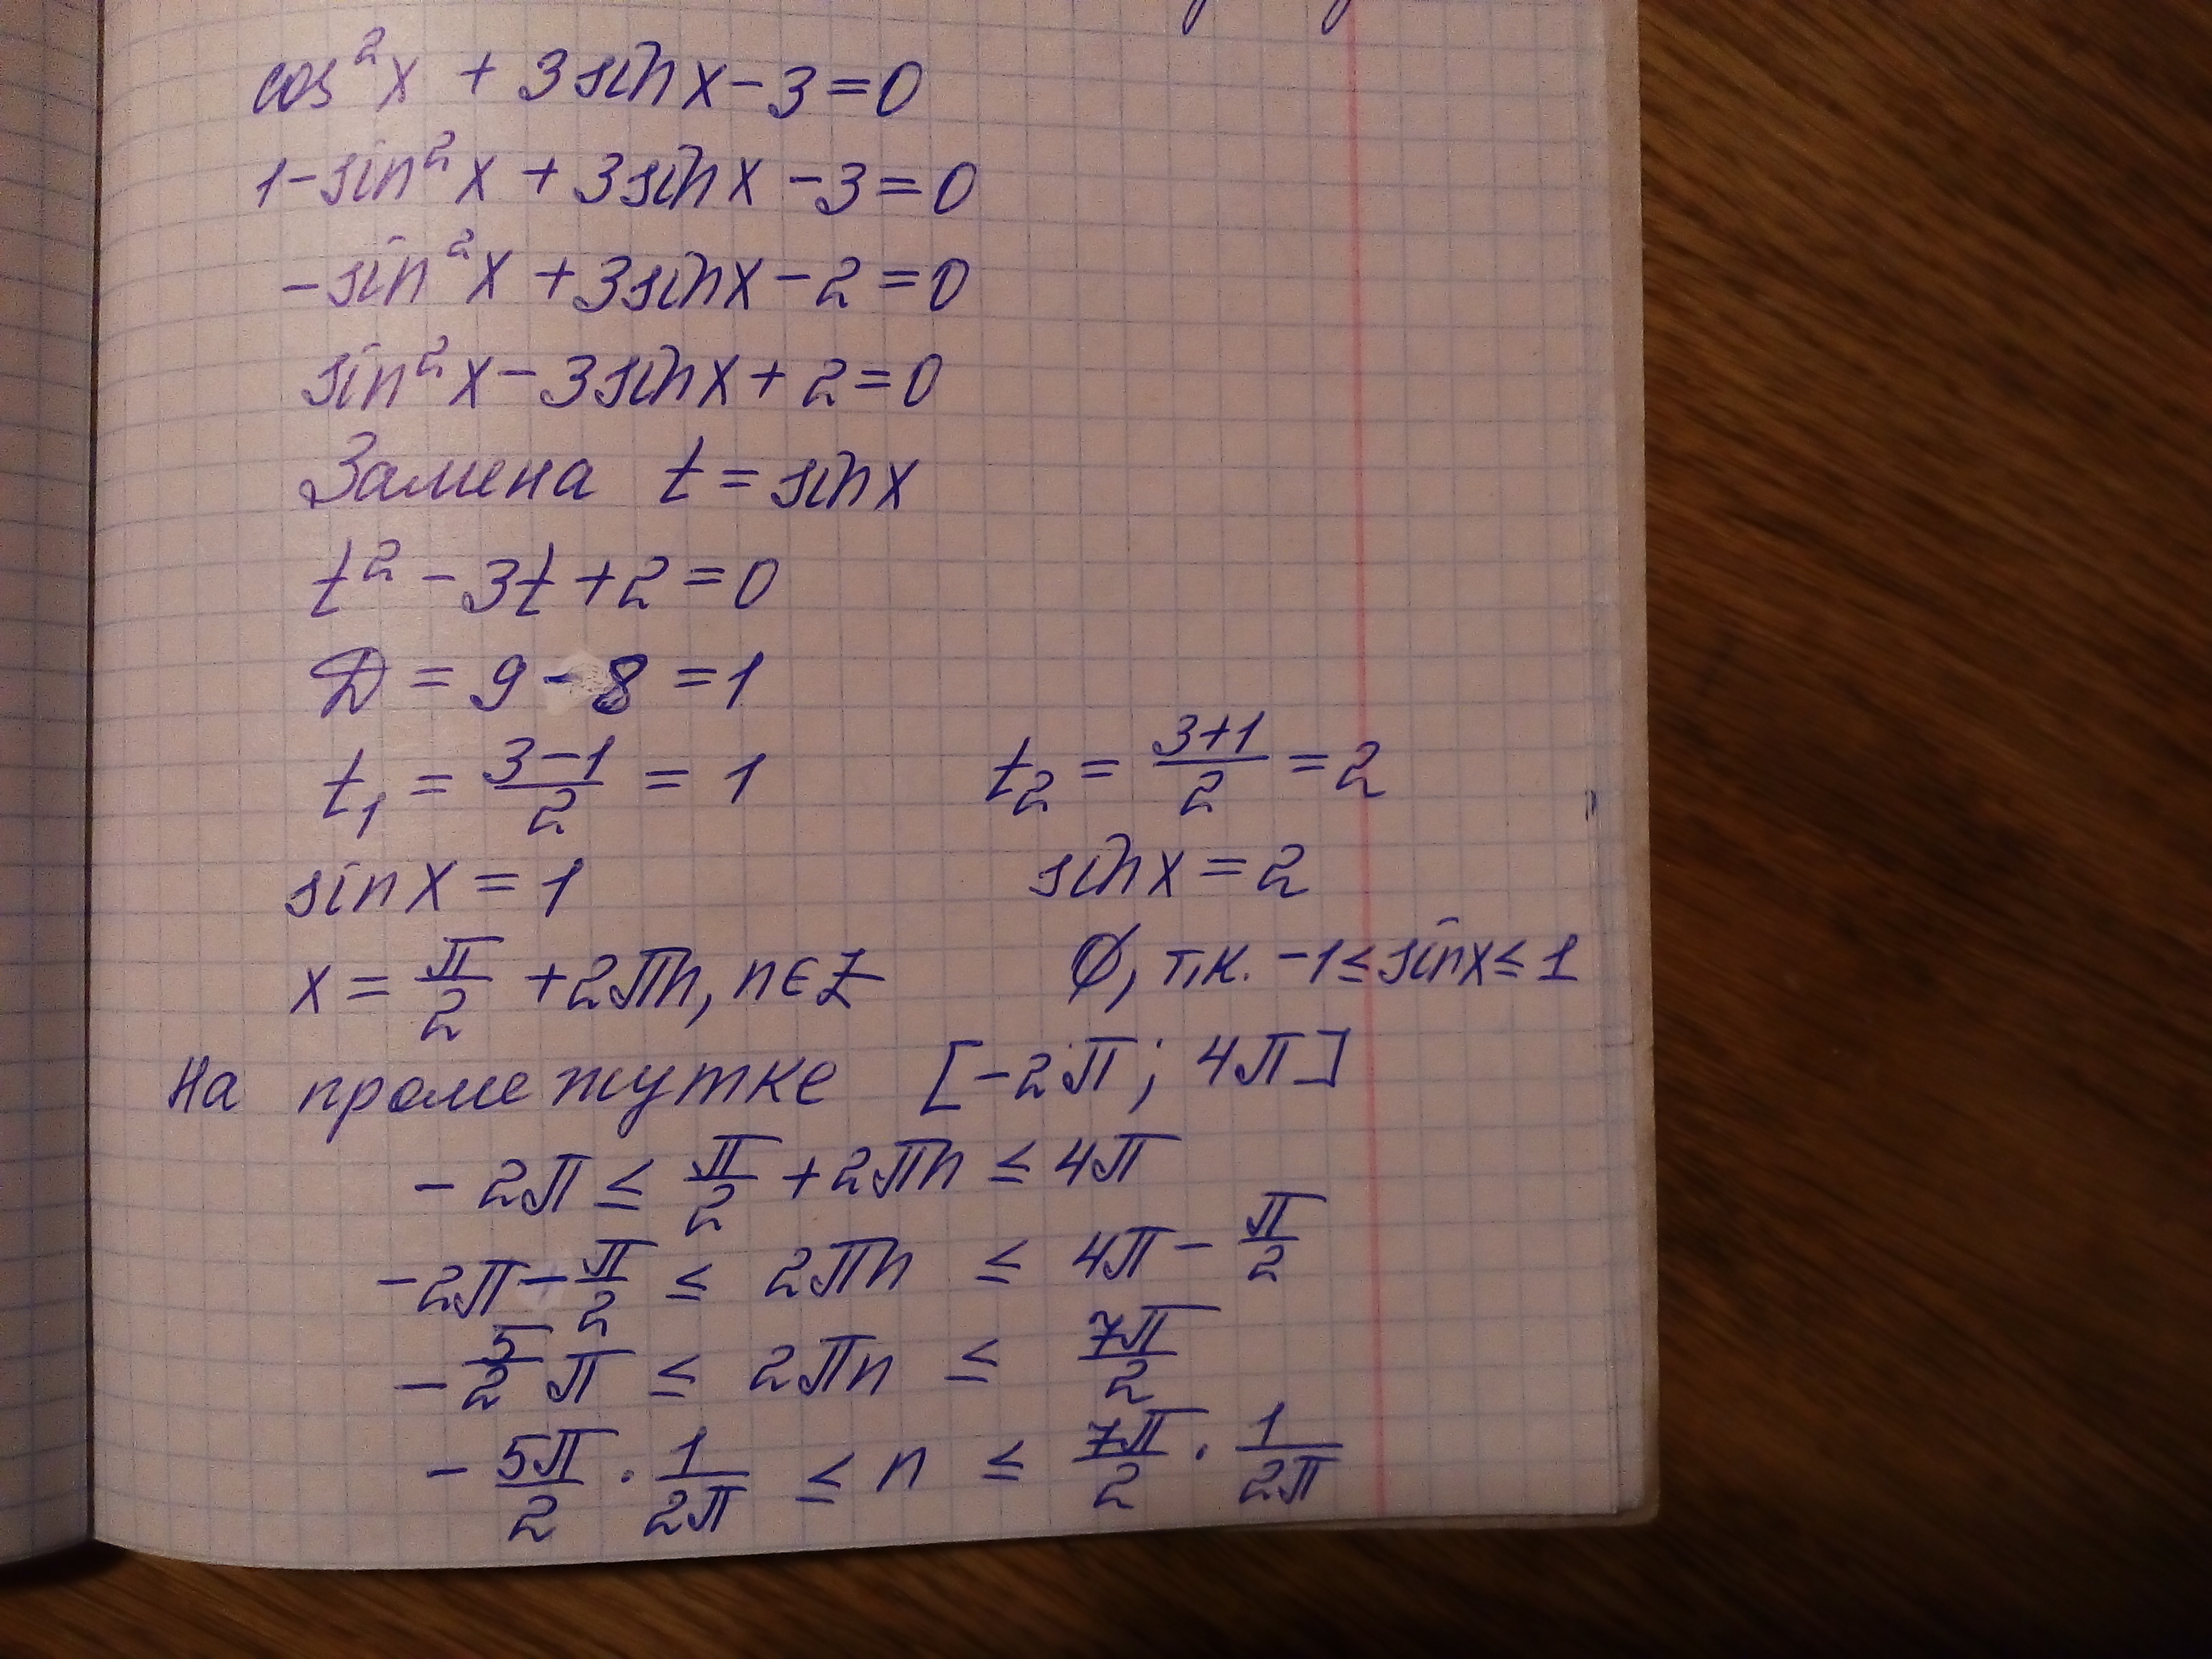 cos²x + 3sinx - 3 = 0
1 - sin²x + 3sinx - 3 = 0
-sin²x + 3sinx - 2 = 0
sin²x - 3sinx + 2 = 0
Замена t = sinx
t² - 3t + 2 = 0
D = 9 - 8 = 1
t₁ = (3-1)/2 = 1 t₂ = (3+1)/2 = 2
sinx = 1 sinx = 2
x = π/2 + 2πn, n∈Z ∅, т.к. -1≤sinx≤1
На промежутке [-2π; 4π]
-2π ≤ π/2 + 2πn ≤ 4π
-2π - π/2 ≤ 2πn ≤ 4π - π/2
-5/2 π ≤ 2πn ≤ 7π/2
-5π/2 · 1/2π ≤ n ≤ 7π/2 · 1/2π